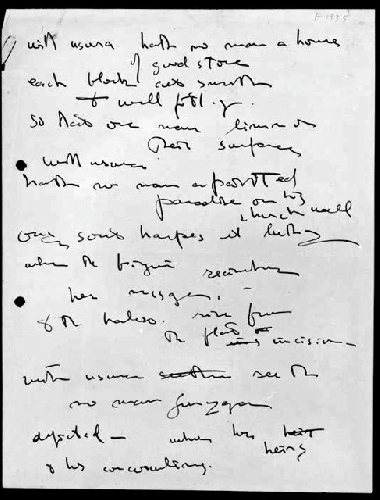 with usura hath no man a house
of good stone
each block cut smooth
& well fitting.
so that one may
their surface,
with usura
hath no man a painted
paradise on his
church wall
harpes et luthes
when the virgin
her message,
& the halos rise from
the incision
with usura see th
no man Gonzaga
depicted — when his
heirs
& his concubines.